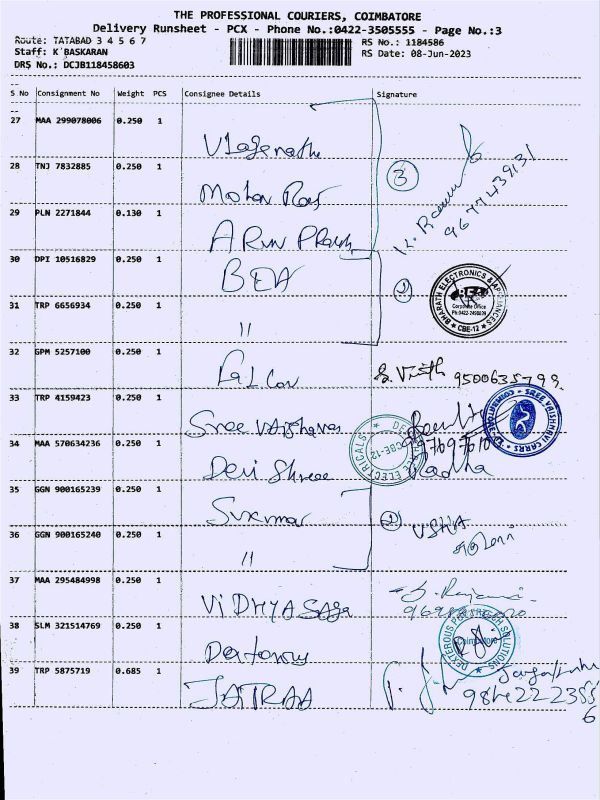 THE PROFESSIONAL COURIERS, COIMBATORE
Delivery Runsheet - PCX - Phone No.:0422-3505555 - Page No.:3
Route: TATABAD 3 4 5 6 7
Staff: K BASKARAN
DRS No.: DCJB118458603
RS No.: 1184586
RS Date: 08-Jun-2023
S No Consignment No Weight PCS Consignee Details Signature
27 MAA 299078006 0.250 1
28 TNJ 7832885 0.250 1
Mohan Raj
3
29 PLN 2271844 0.130 1
ARUN PRasath
30 DPI 10516829 0.250 1
BEA
2
BHARATH ELECTRONICS & APPLIANCES
BEA
Corporate Office
CBE-12
31 TRP 6656934 0.250 1
"
32 GPM 5257100 0.250 1
9500635799
33 TRP 4159423 0.250 1
Sree Vaishnavi
SREE VAISHNAVI CARRS
COIMBATORE-12
34 MAA 570634236 0.250 1
Devi Shree
ELECTRICALS
CBE-12
Radha
35 GGN 900165239 0.250 1
Sukumar
2
USHA
36 GGN 900165240 0.250 1
"
37 MAA 295484998 0.250 1
VIDHYA Saga
38 SLM 321514769 0.250 1
Coimbatore
39 TRP 5875719 0.685 1
JATRAA